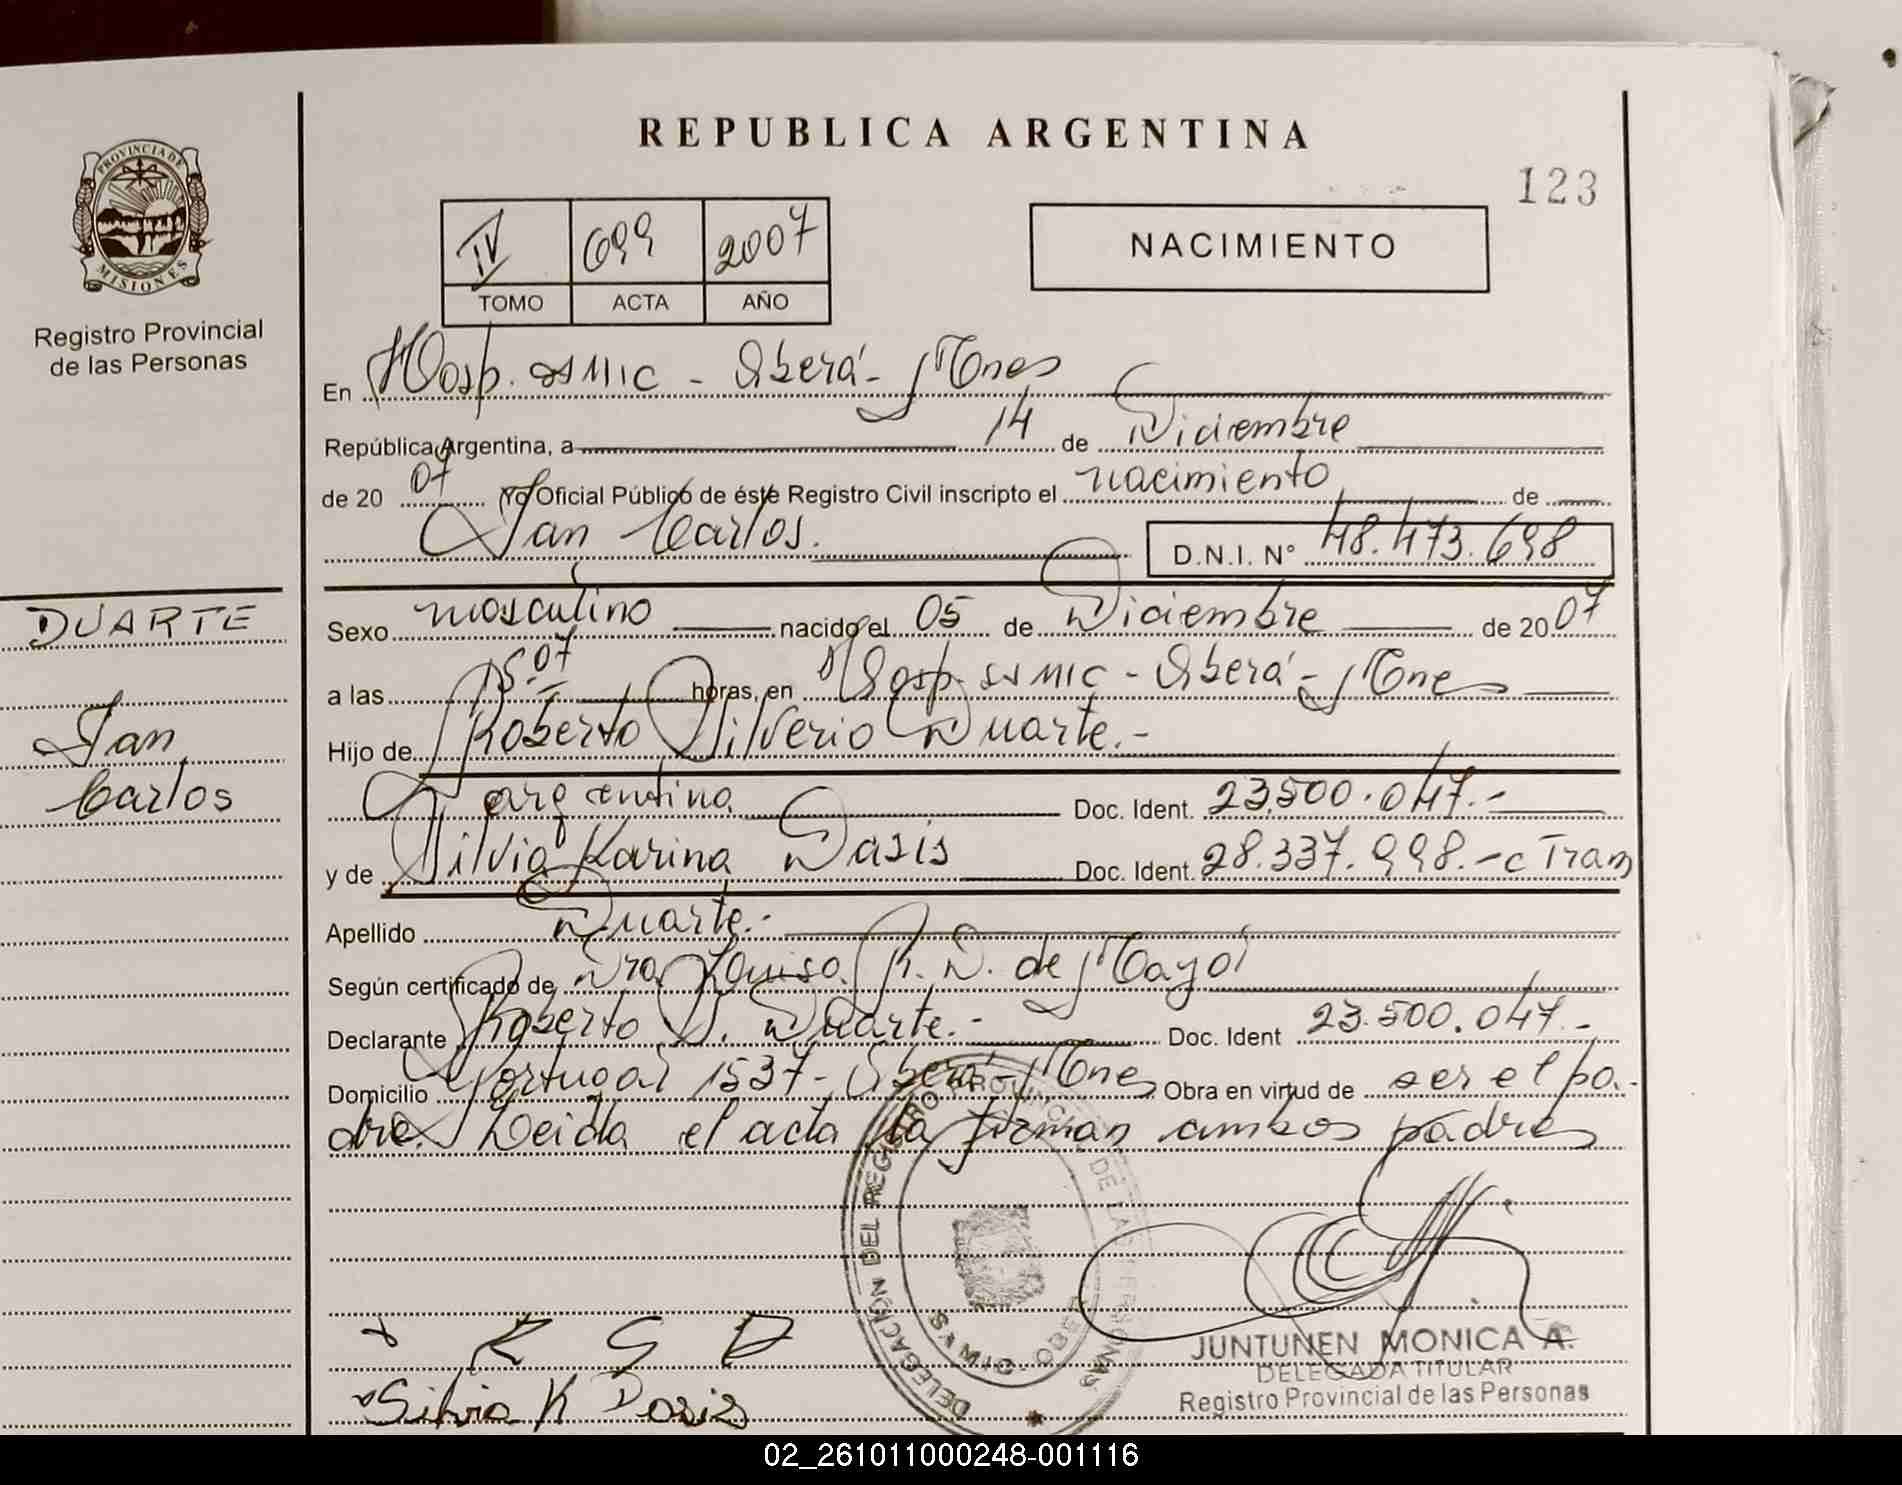 REPUBLICA ARGENTINA
123
PROVINCIA DE
MISIONES
Registro Provincial
de las Personas
IV 699 2007
TOMO ACTA AÑO
NACIMIENTO
En Hosp. SSMIC - Oberá - Mnes
República Argentina, a 14 de Diciembre
de 20 07 Yo Oficial Público de éste Registro Civil inscripto el nacimiento de
Ian Carlos. D.N.I. N° 48.473.698
DUARTE
Ian
Carlos
Sexo masculino nacido el 05 de Diciembre de 20 07
a las 15.07 horas, en Hosp. SSMIC - Oberá - Mnes
Hijo de Roberto Silverio Duarte.-
argentino Doc. Ident. 23.500.047.-
y de Silvia Karina Dasis Doc. Ident. 28.337.998.- c Tram
Apellido Duarte.-
Según certificado de Dra Louisa R. D. de Mayol
Declarante Roberto S. Duarte.- Doc. Ident 23.500.047.-
Domicilio Portugal 1537 - Oberá - Mnes Obra en virtud de ser el pa.-
dre. Leida el acta la firman ambos padres
DELEGACIÓN DEL REGISTRO PROVINCIAL DE LAS PERSONAS
R S D
Silvia K Dasis
JUNTUNEN MONICA A.
DELEGADA TITULAR
Registro Provincial de las Personas
02_261011000248-001116